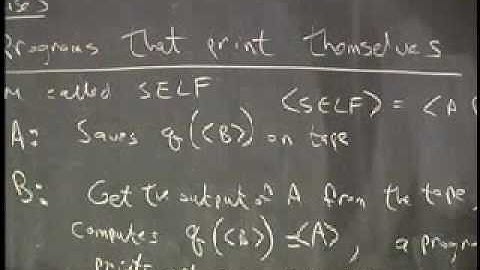 Programs that print themselves
M called SELF
⟨SELF⟩ = ⟨A
A: Saves q(⟨B⟩) on tape
B: Get the output of A from the tape,
computes q(⟨B⟩) = ⟨A⟩, a progra